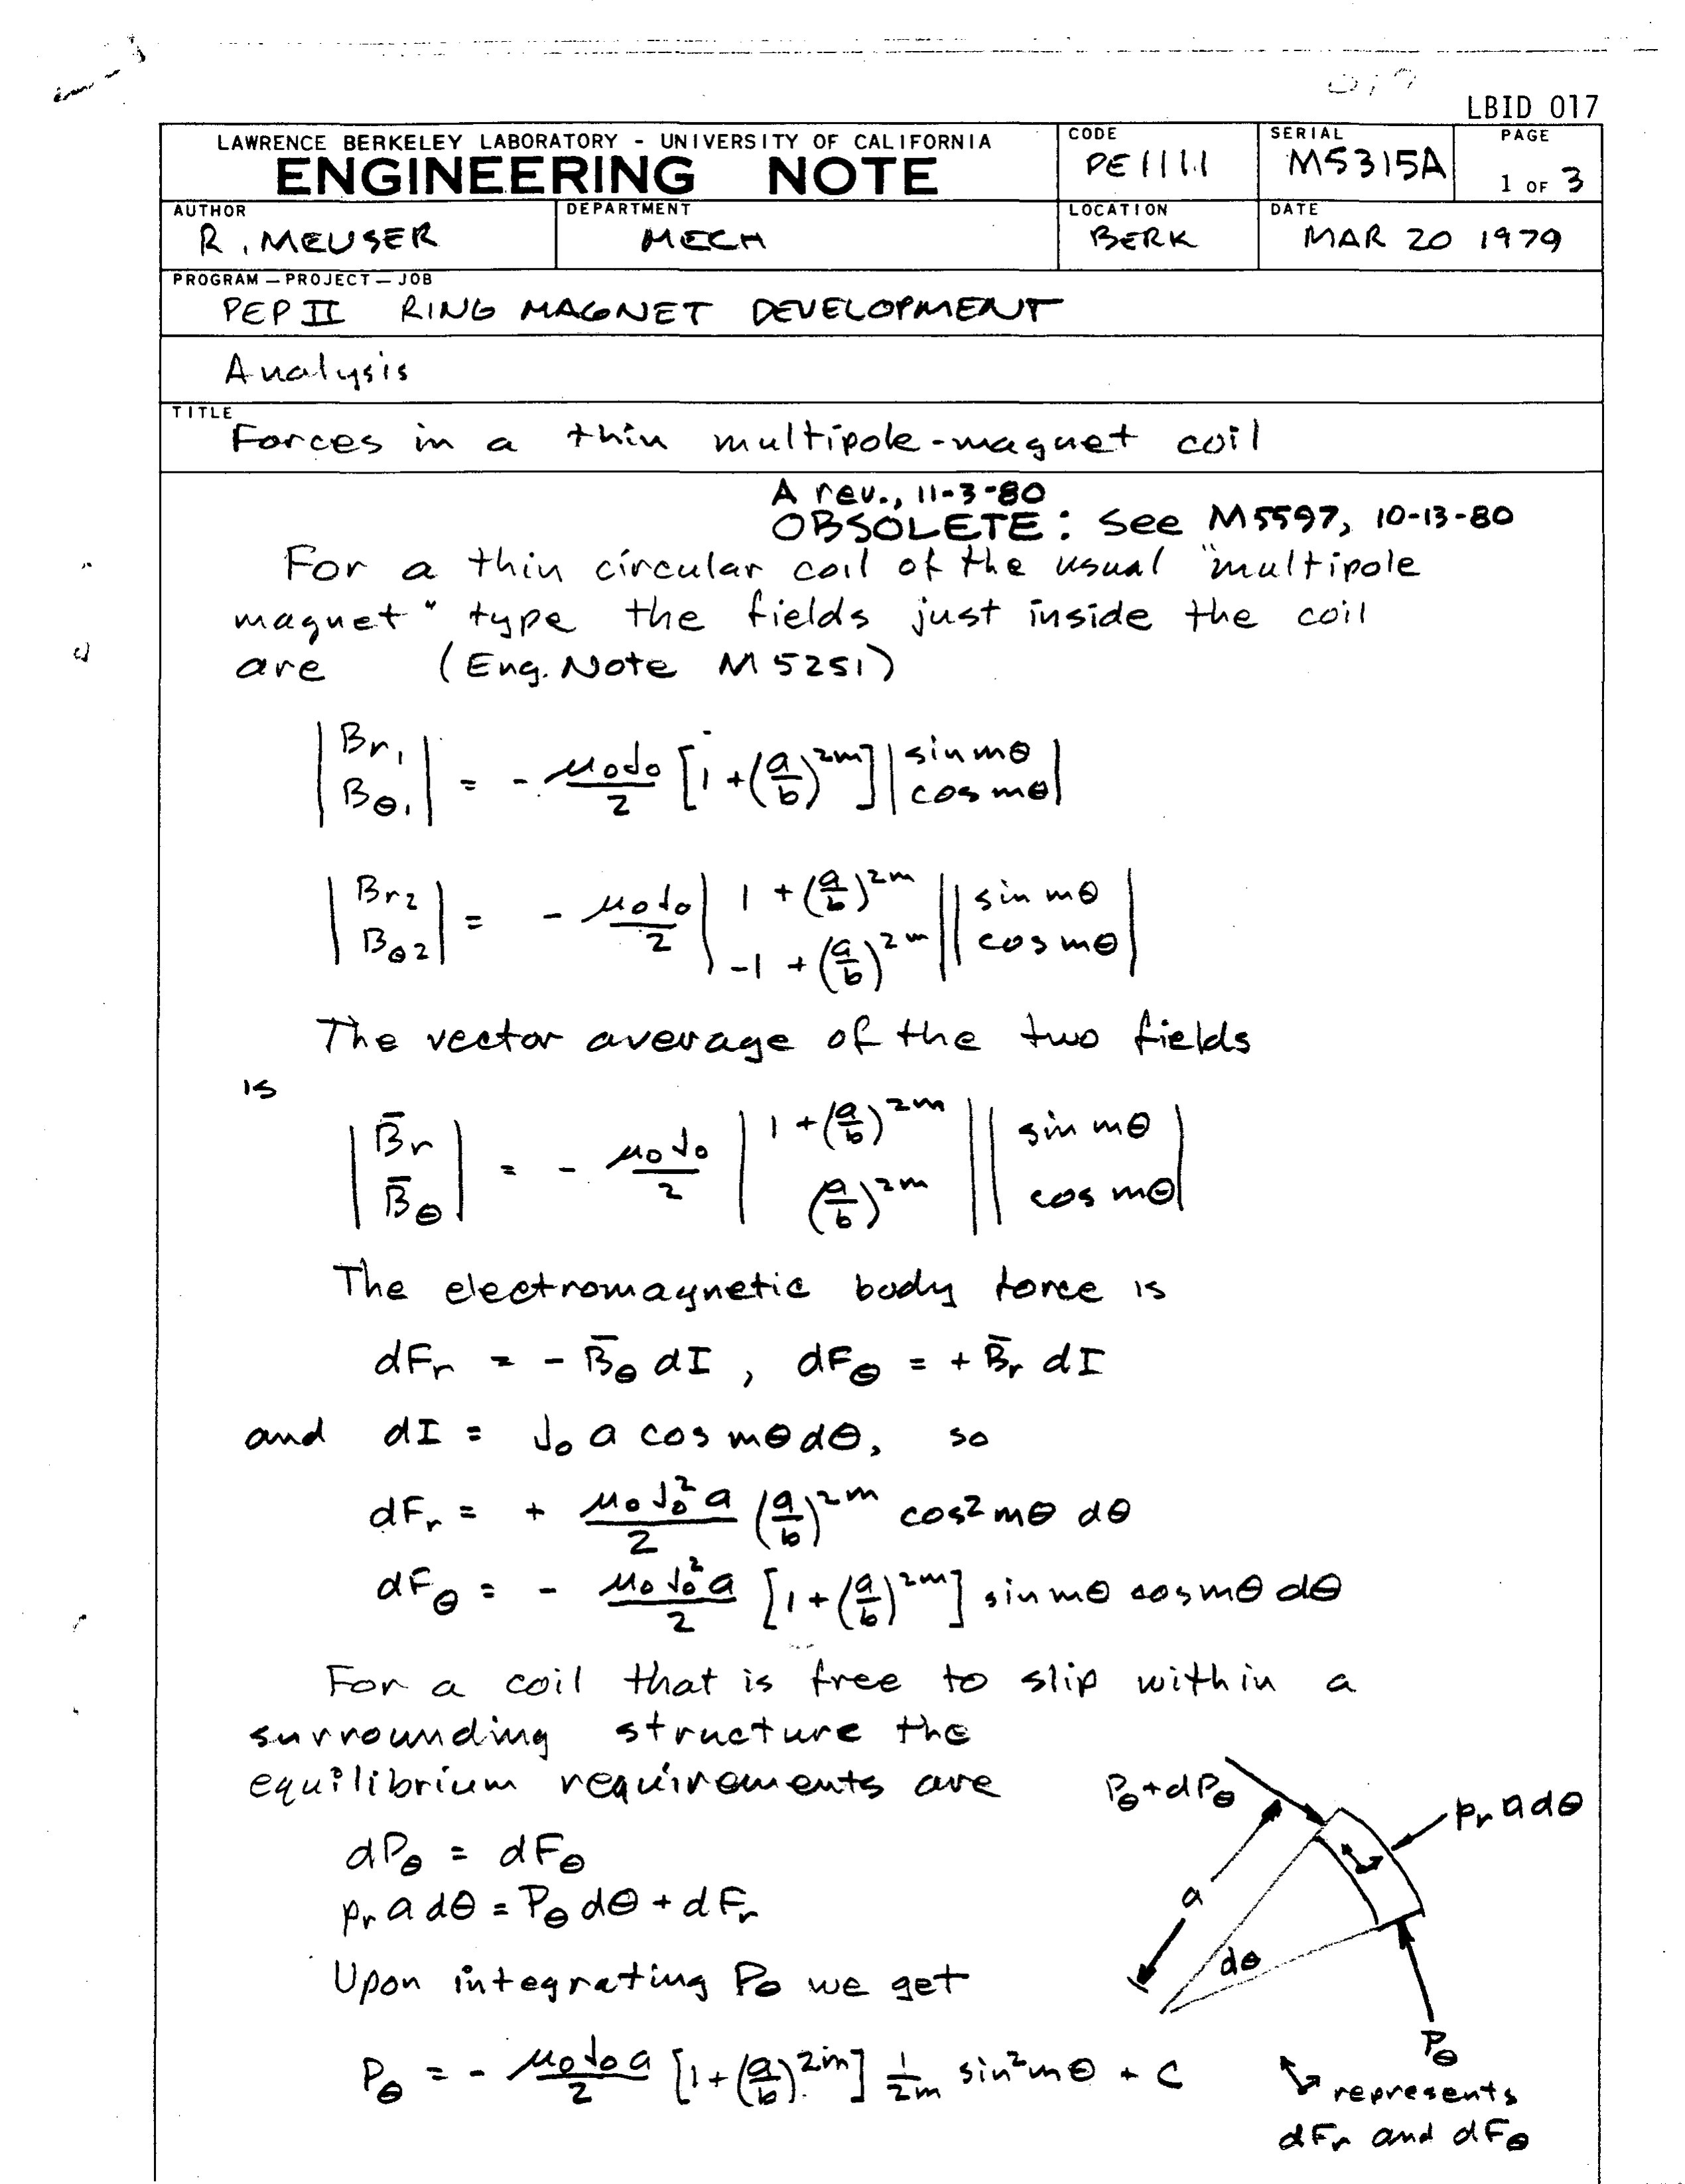 LBID 017
LAWRENCE BERKELEY LABORATORY - UNIVERSITY OF CALIFORNIA
ENGINEERING NOTE
CODE
PE1111
SERIAL
M5315A
PAGE
1 OF 3
AUTHOR
R. MEUSER
DEPARTMENT
MECH
LOCATION
BERK
DATE
MAR 20 1979
PROGRAM — PROJECT — JOB
PEP II RING MAGNET DEVELOPMENT
Analysis
TITLE
Forces in a thin multipole-magnet coil
A rev., 11-3-80
OBSOLETE: See M5597, 10-13-80
For a thin circular coil of the usual "multipole
magnet" type the fields just inside the coil
are (Eng. Note M5251)
|Br₁ ; Bθ₁| = - μ₀J₀/2 [1 + (a/b)^2m] |sin mθ ; cos mθ|
|Br₂ ; Bθ₂| = - μ₀J₀/2 |1 + (a/b)^2m ; -1 + (a/b)^2m| |sin mθ ; cos mθ|
The vector average of the two fields
is
|B̄r ; B̄θ| = - μ₀J₀/2 |1 + (a/b)^2m ; (a/b)^2m| |sin mθ ; cos mθ|
The electromagnetic body force is
dFr = - B̄θ dI , dFθ = + B̄r dI
and dI = J₀ a cos mθ dθ, so
dFr = + μ₀J₀²a/2 (a/b)^2m cos² mθ dθ
dFθ = - μ₀J₀²a/2 [1 + (a/b)^2m] sin mθ cos mθ dθ
For a coil that is free to slip within a
surrounding structure the
equilibrium requirements are
dPθ = dFθ
pr a dθ = Pθ dθ + dFr
Upon integrating Pθ we get
Pθ = - μ₀J₀a/2 [1 + (a/b)^2m] 1/2m sin² mθ + C
Pθ + dPθ
pr a dθ
a
dθ
Pθ
represents
dFr and dFθ